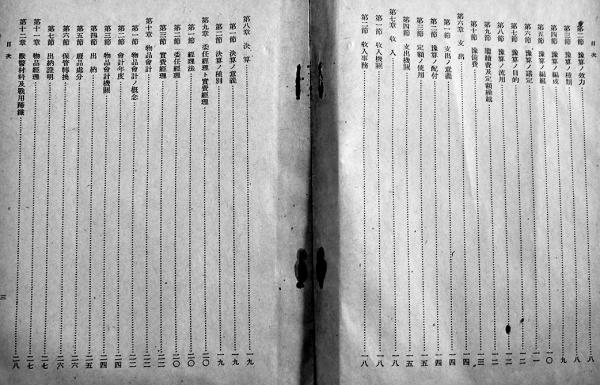 目次
第二節 豫算ノ效力 八
第三節 豫算ノ種類 八
第四節 豫算ノ編成 九
第五節 豫算ノ編組 一〇
第六節 豫算ノ議定 一一
第七節 豫算ノ目的 一二
第八節 豫算ノ流用 一二
第九節 繼續費及定額繰越 一二
第十節 豫備費 一三
第六章 支出 一四
第一節 支出ノ意義 一四
第二節 豫算ノ配付 一四
第三節 豫算ノ使用 一五
第四節 支出機關 一五
第七章 收入 一八
第一節 收入機關 一八
第二節 收入事務 一八
第八章 決算 一九
第一節 決算ノ意義 一九
第二節 決算ノ種別 一九
第九章 委任經理ト實費經理 二〇
第一節 經理法 二〇
第二節 委任經理 二〇
第三節 實費經理 二二
第十章 物品會計 二二
第一節 物品會計ノ概念 二二
第二節 會計年度 二四
第三節 物品會計機關 二四
第四節 出納 二五
第五節 廢品處分 二六
第六節 保管轉換 二六
第七節 出納證明 二七
第十一章 物品經理 二七
第十二章 獸醫材料及戰用蹄鐵 二八
目次
三